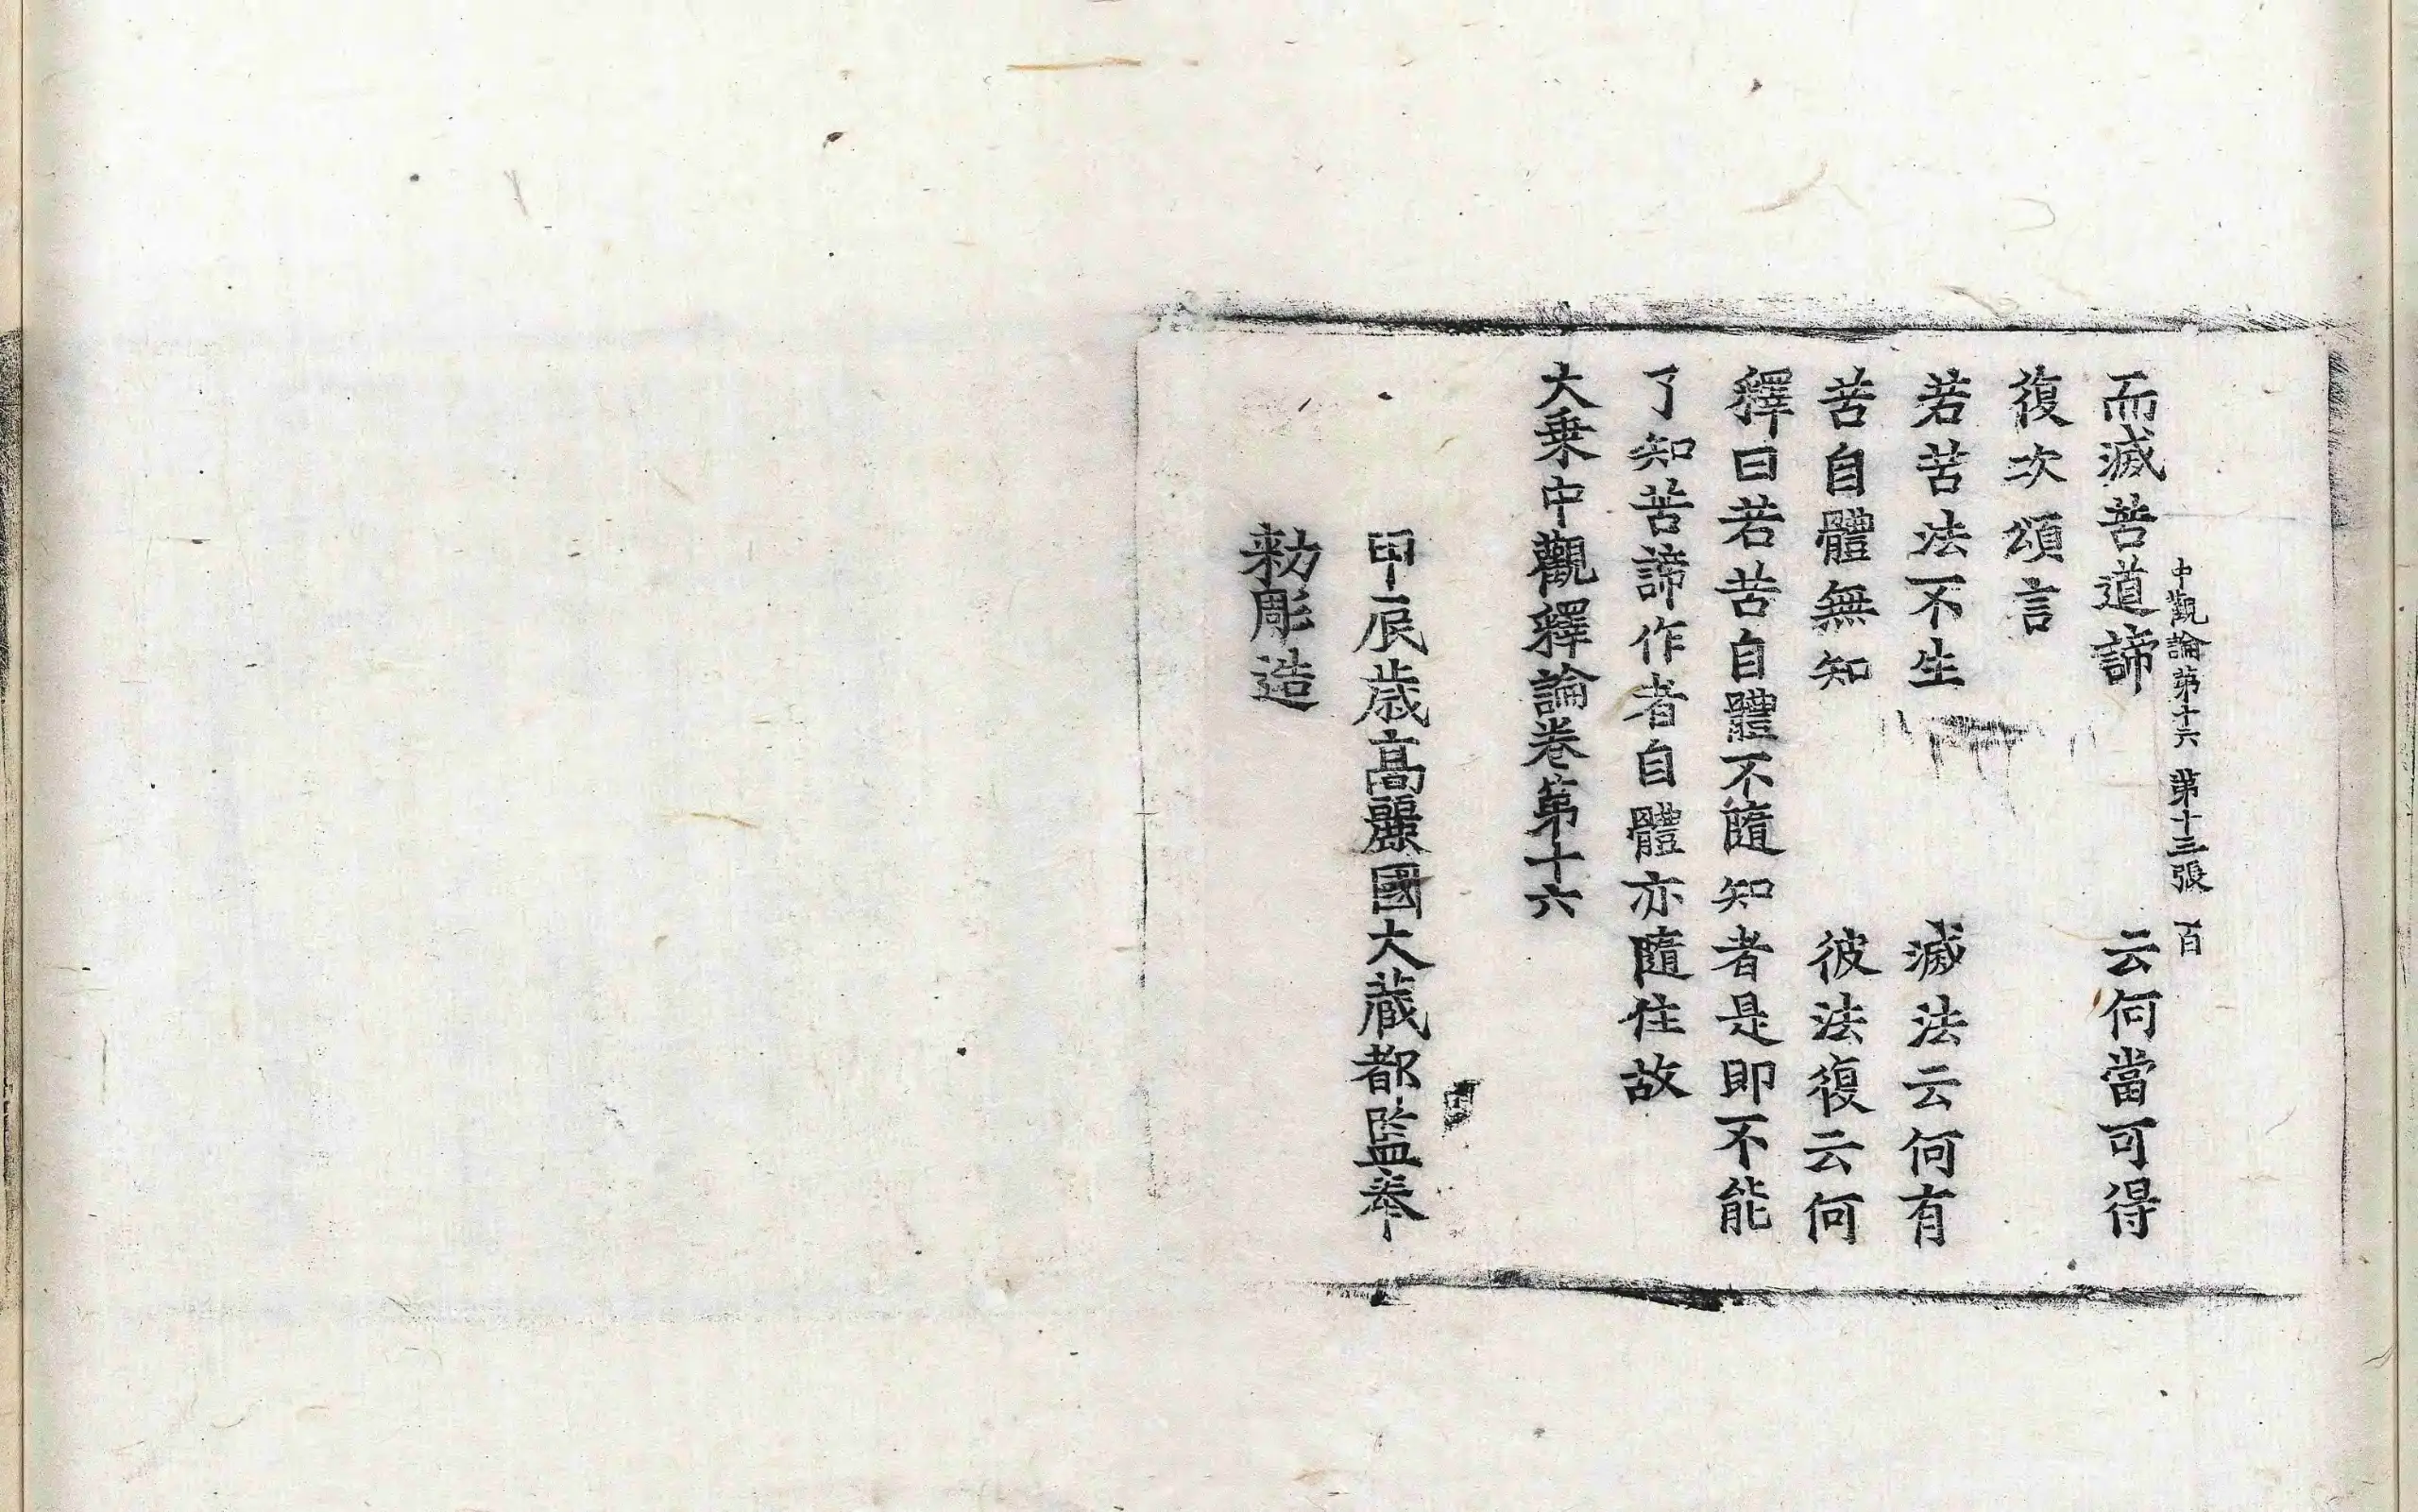 中觀論第十六 第十三張 百
而滅苦道諦 云何當可得
復次頌言
若苦法不生 滅法云何有
苦自體無知 彼法復云何
釋曰若苦自體不隨知者是即不能
了知苦諦作者自體亦隨住故
大乗中觀釋論卷第十六
甲辰歲高麗國大藏都監奉
勑彫造